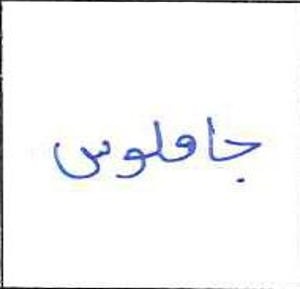 جافلوس